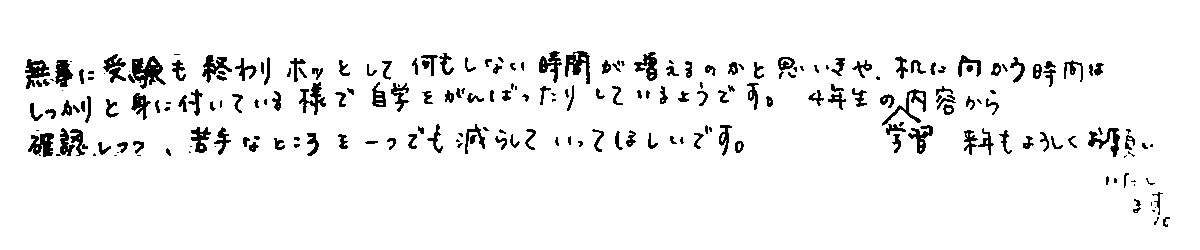 無事に受験も終わりホッとして何もしない時間が増えるのかと思いきや、机に向かう時間は
しっかりと身に付いている様で自学をがんばったりしているようです。4年生の学習内容から
確認しつつ、苦手なところを一つでも減らしていってほしいです。 来年もよろしくお願い
いたし
ます。